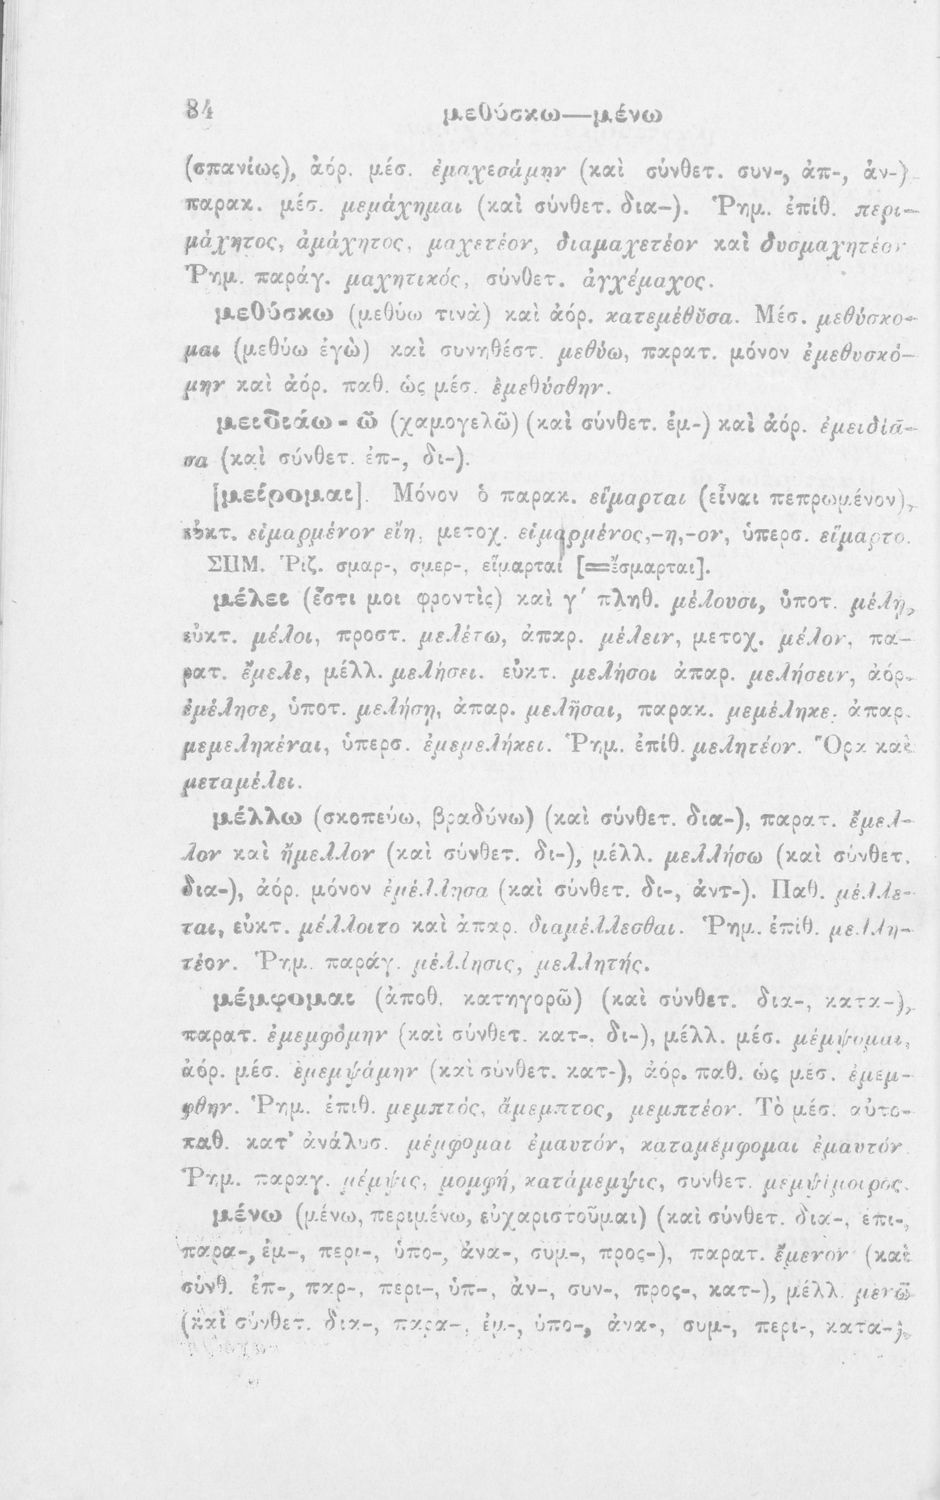 84 μεθύσκω—μένω
(σπανίως), ἀόρ. μέσ. ἐμαχεσάμην (καὶ σύνθετ. συν-, ἀπ-, ἀν-)
παρακ. μέσ. μεμάχημαι (καὶ σύνθετ. δια-). Ῥημ. ἐπίθ. περι-
μάχητος, ἀμάχητος, μαχετέον, διαμαχετέον καὶ δυσμαχητέον
Ῥημ. παράγ. μαχητικός, σύνθετ. ἀγχέμαχος.
μεθύσκω (μεθύω τινὰ) καὶ ἀόρ. κατεμέθῦσα. Μέσ. μεθύσκο-
μαι (μεθύω ἐγὼ) καὶ συνηθέστ. μεθύω, παρατ. μόνον ἐμεθυσκό-
μην καὶ ἀόρ. παθ. ὡς μέσ. ἐμεθύσθην.
μειδιάω-ῶ (χαμογελῶ) (καὶ σύνθετ. ἐμ-) καὶ ἀόρ. ἐμειδία-
σα (καὶ σύνθετ. ἐπ-, δι-).
[μείρομαι]. Μόνον ὁ παρακ. εἵμαρται (εἶναι πεπρωμένον),
εὐκτ. εἱμαρμένον εἴη, μετοχ. εἱμαρμένος,-η,-ον, ὑπερσ. εἵμαρτο.
ΣΗΜ. Ῥιζ. σμαρ-, σμερ-, εἵμαρται [=ἔσμαρται].
μέλει (ἔστι μοι φροντὶς) καὶ γ′ πληθ. μέλουσι, ὑποτ. μέλῃ,
εὐκτ. μέλοι, προστ. μελέτω, ἀπαρ. μέλειν, μετοχ. μέλον, πα-
ρατ. ἔμελε, μέλλ. μελήσει. εὐκτ. μελήσοι ἀπαρ. μελήσειν, ἀόρ.
ἐμέλησε, ὑποτ. μελήσῃ, ἀπαρ. μελῆσαι, παρακ. μεμέληκε, ἀπαρ.
μεμεληκέναι, ὑπερσ. ἐμεμελήκει. Ῥημ. ἐπίθ. μελητέον. Ὅρα καὶ
μεταμέλει.
μέλλω (σκοπεύω, βραδύνω) (καὶ σύνθετ. δια-), παρατ. ἔμελ-
λον καὶ ἤμελλον (καὶ σύνθετ. δι-), μέλλ. μελλήσω (καὶ σύνθετ.
δια-), ἀόρ. μόνον ἐμέλλησα (καὶ σύνθετ. δι-, ἀντ-). Παθ. μέλλε-
ται, εὐκτ. μέλλοιτο καὶ ἀπαρ. διαμέλλεσθαι. Ῥημ. ἐπίθ. μελλη-
τέον. Ῥημ. παράγ. μέλλησις, μελλητής.
μέμφομαι (ἀποθ. κατηγορῶ) (καὶ σύνθετ. δια-, κατα-),
παρατ. ἐμεμφόμην (καὶ σύνθετ. κατ-, δι-), μέλλ. μέσ. μέμψομαι,
ἀόρ. μέσ. ἐμεμψάμην (καὶ σύνθετ. κατ-), ἀόρ. παθ. ὡς μέσ. ἐμεμ-
φθην. Ῥημ. ἐπιθ. μεμπτός, ἄμεμπτος, μεμπτέον. Τὸ μέσ. αὐτο-
παθ. κατ’ ἀνάλυσ. μέμφομαι ἐμαυτόν, καταμέμφομαι ἐμαυτόν
Ῥημ. παραγ. μέμψις, μομφή, κατάμεμψις, συνθετ. μεμψίμοιρος.
μένω (μένω, περιμένω, εὐχαριστοῦμαι) (καὶ σύνθετ. δια-, επι-,
παρα-, ἐμ-, περι-, ὑπο-, ἀνα-, συμ-, προς-), παρατ. ἔμενον (καὶ
σύνθ. ἐπ-, παρ-, περι-, ὑπ-, ἀν-, συν-, προς-, κατ-), μέλλ. μενῶ
(καὶ σύνθετ. δια-, παρα-, ἐμ-, ὑπο-, ἀνα-, συμ-, περι-, κατα-),